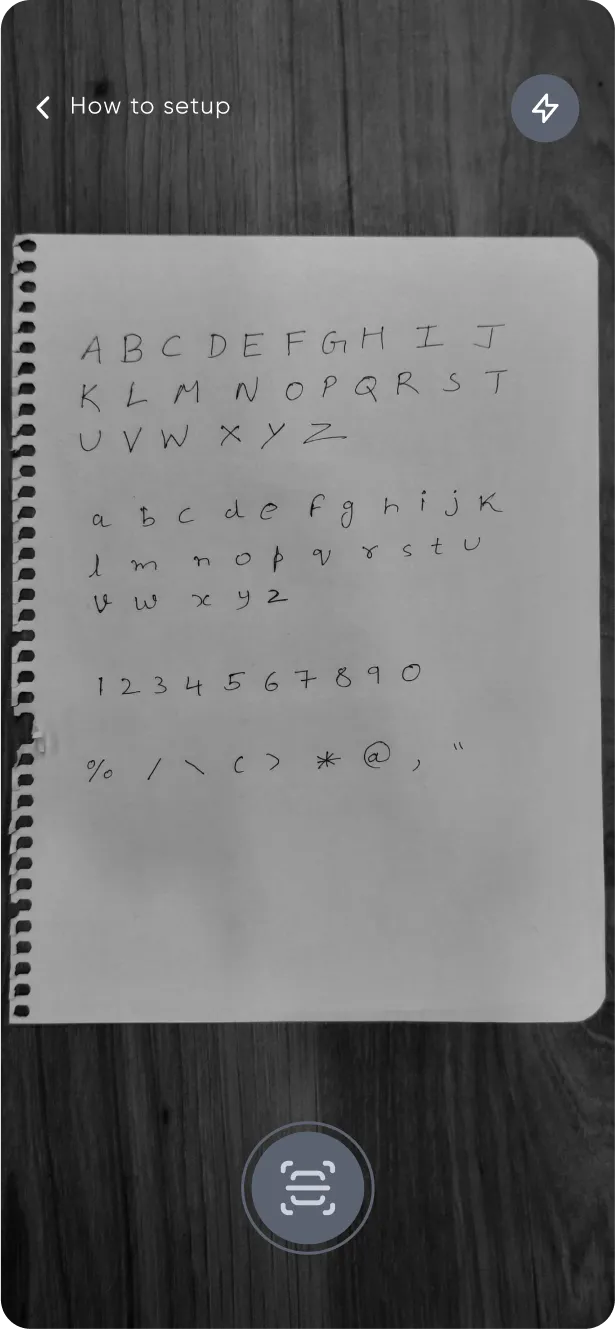 How to setup
A B C D E F G H I J
K L M N O P Q R S T
U V W X Y Z
a b c d e f g h i j k
l m n o p q r s t u
v w x y z
1 2 3 4 5 6 7 8 9 0
% / \ ( ) * @ , "